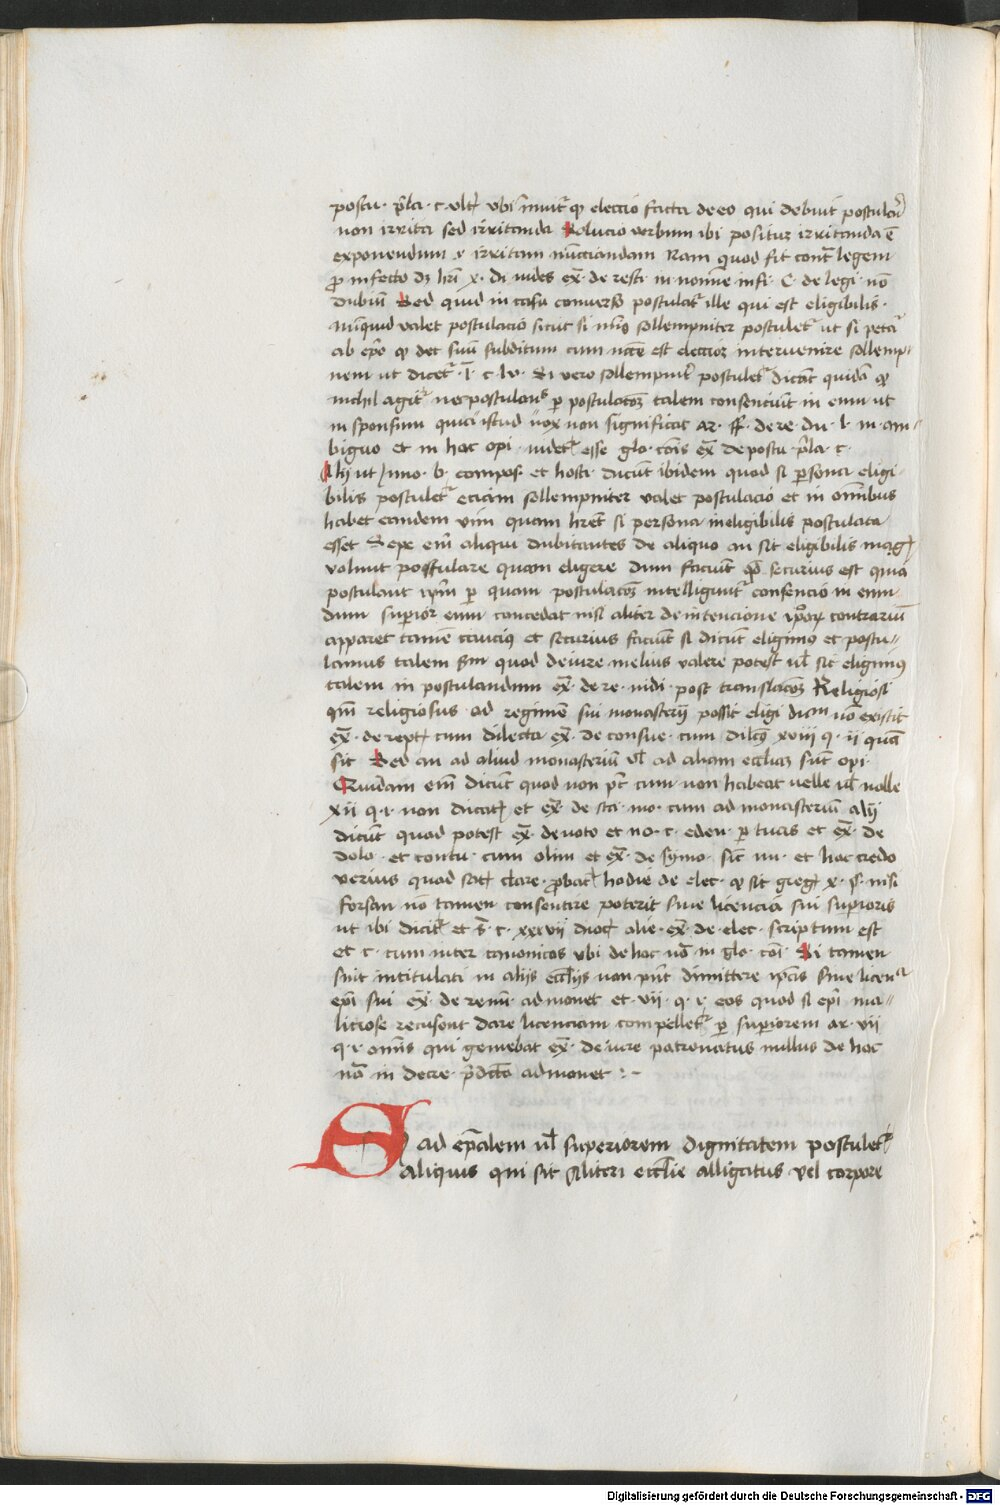 postu. p̄la. c. vlt̄ vbi īnuit᷑ qꝫ eleccio facta de eo qui debuit postulaꝛ̄
non irrita sed irritanda Solucio verbum ibi positum irritanda ē
exponendum .i. irritam nunciandam Nam quod fit contᵃ legem
ꝓ infecto dꝫ hr̄i x. di vides ex̄ de resti in nomine infi. C. de legi. nō
dubiū Sed quid in casu conuerso postulat᷑ ille qui est eligibilis.
nūquid valet postulacio sicut si minꝰ sollempniter postulet᷑ ut si petat᷑
ab ep̄o qꝫ det suū subditum cum nc̄ce est eleccioꝫ interuenire sollemp
nem ut dicet᷑ .j. c. lv. Si vero sollempnit᷑ postulet᷑ dicūt quidā qꝫ
nichil agit᷑ nec postulans ꝑ postulacōꝫ talem consenciūt in eum ut
in sponsum quia istud vox non significat ar. ff. de re. du. l. in am-
biguo et in hac opi. videt᷑ esse glo. cōis ex̄ de postu. p̄la. c.
Alij ut Inno. b. compos. et hosti. dicūt ibidem quod si ꝑsona eligi
bilis postulet᷑ eciam sollempniter valet postulacio et in omībus
habet eandem vim quam hr̄et si persona ineligibilis postulata
esset Sepe em̄ aliqui dubitantes de aliquo an sit eligibilis maḡ
volunt postulare quam eligere dum faciūt qd̄ securius est quia
postulant ip̄m ꝑ quam postulacōꝫ intelligunt᷑ consencio in eum
dum suꝑior eum concedat nisi aliter de intencione ip̄oꝝ contrariū
apparet tamē caucius et securius faciūt si dicūt eligimꝰ et postu-
lamus talem ẜm quod de iure melius valere potest vl̄ sic eligimꝰ
talem in postulandum ex̄. de re. iudi. post translacōꝫ Religiosi
qm̄ religiosus ad regimē sui monasterij possit eligi dum nō existit
ex̄. de rept̄ cum dilecta ex̄. de consue. cum dilc̄ꝰ xviii q. ii quā
sit Sed an ad aliud monasteriū vl̄ ad aliam eccl̄iaꝫ sūt opi.
Quidam em̄ dicūt quod non pt̄ cum non habeat velle vl̄ nolle
xii q. i. non dicatꝭ et ex̄. de sta. mo. cum ad monasteriū alij
dicūt quod potest ex̄. de voto et vo. c. eden. ꝑ lucis et ex̄. de
dolo. et contu. cum olim et ex̄. de symo. sic̄ nu. et hoc credo
verius quod satꝭ clare. ꝓbat᷑ hodie de elec. qꝫ sit greg᷑ x. §. nisi
forsan nō tamen consentire poterit sine licencia sui suꝑioris
ut ibi dicit᷑ et s̄. c. xxxvii dioc᷑ alie. ex̄. de. elec. scriptum est
et c. cum inter canonicos vbi de hoc nō in glo. cōi. Si tamen
sunt intitulati in alijs eccl̄ijs non pn̄t dimittere ip̄as sine licenᵃ
ep̄i sui ex̄. de renū. admonet et. vii. q. i. eos quod si ep̄i ma-
liciose recusent dare licenciam compellet᷑ ꝑ suꝑiorem ar. vii
q. i. om̄is qui gemebat ex̄. de iure patronatus nullus de hoc
nō in decre. p̄dc̄to admonet : -
Si ad ep̄alem vl̄ superiorem dignitatem postulet᷑
aliquis qui sit aliteri eccl̄ie alligatus vel corpore
Digitalisierung gefördert durch die Deutsche Forschungsgemeinschaft - DFG